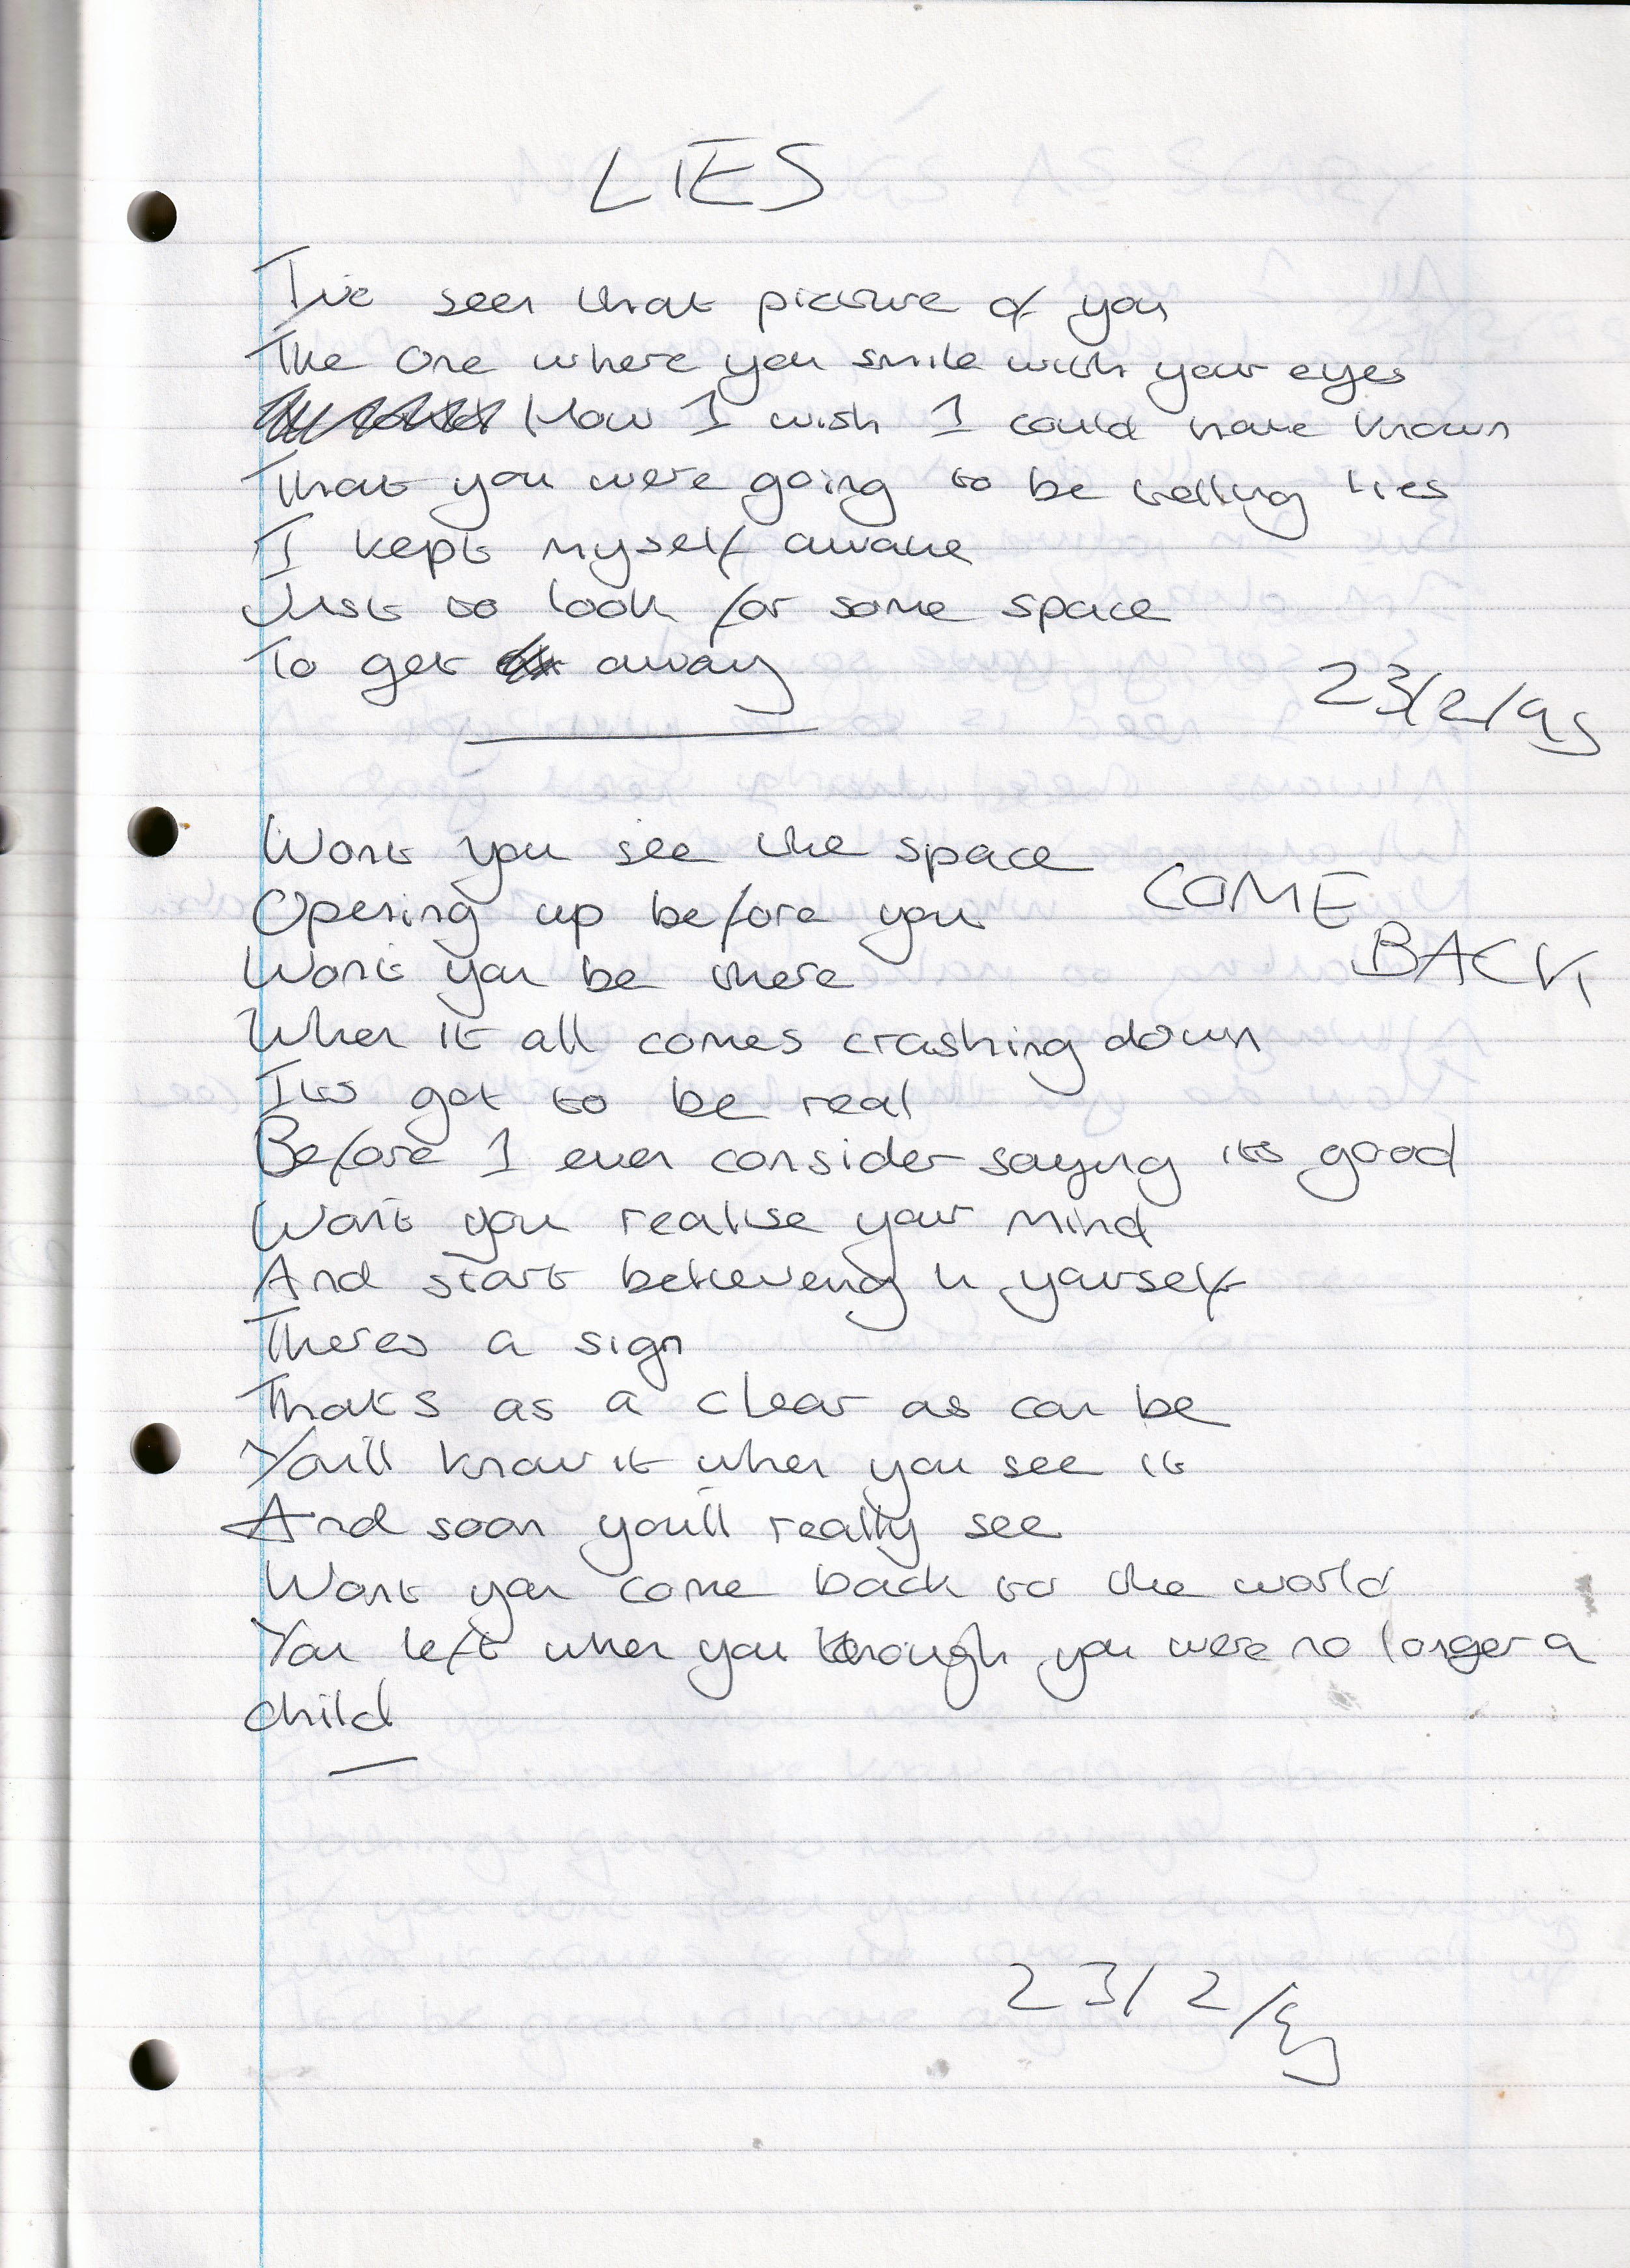 LIES
I've seen that picture of you
The one where you smile with your eyes
How I wish I could have known
That you were going to be telling lies
I kept myself awake
Just to look for some space
To get away
23/2/95
Wont you see the space
COME
Opening up before you
BACK
Wont you be there
When it all comes crashing down
Its got to be real
Before I ever consider saying its good
Wont you realise your mind
And start believeing in yourself
Theres a sign
Thats as a clear as can be
You'll know it when you see it
And soon you'll really see
Wont you come back to the world
You left when you though you were no longer a
child
23/2/95